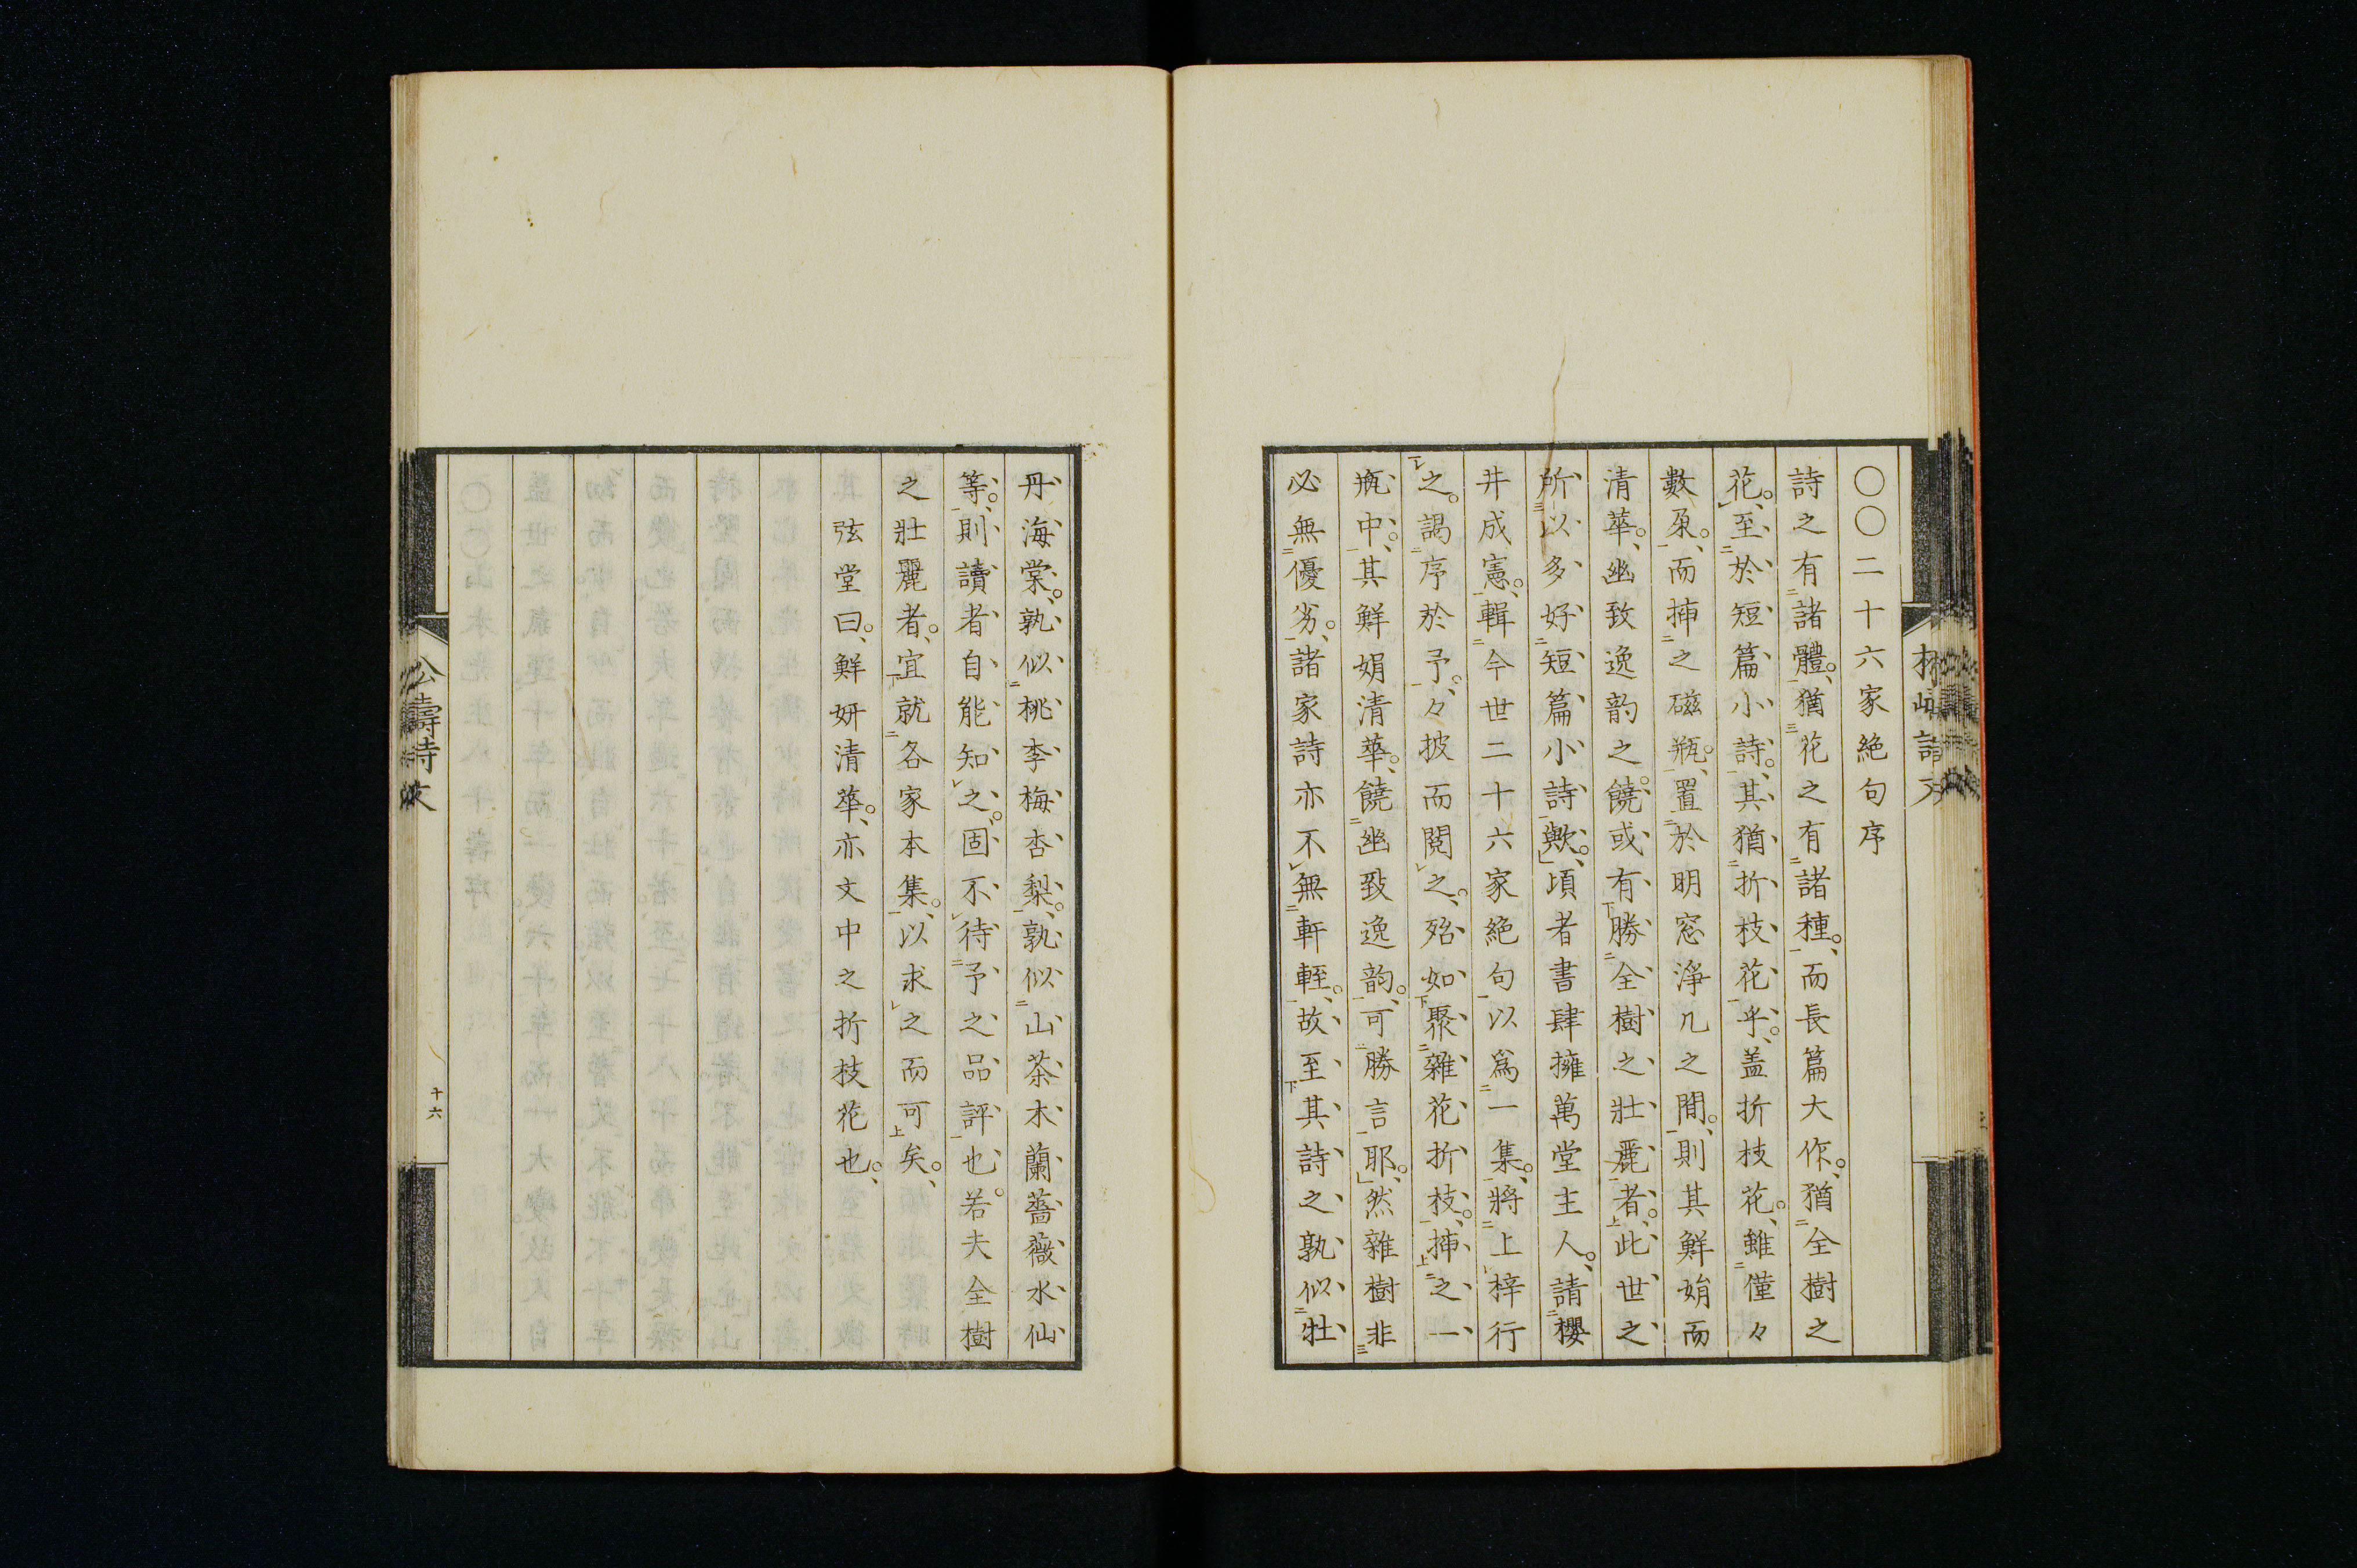 〇〇二十六家絶句序
詩之有諸體。猶花之有諸種。而長篇大作。猶全樹之
花。至於短篇小詩。其猶折枝花乎。盖折枝花。雖僅々
數朶。而揷之磁瓶。置於明窓淨几之間。則其鮮娟而
清華。幽致逸韵之饒。或有勝全樹之壯麗者。此世之
所以多好短篇小詩歟。頃者書肆擁萬堂主人。請櫻
井成憲。輯今世二十六家絶句以爲一集。將上梓行
之。謁序於予。々披而閱之。殆如聚雜花折枝。揷之一
瓶中。其鮮娟清華。饒幽致逸韵。可勝言耶。然雜樹非
必無優劣。諸家詩亦不無軒輊。故至其詩之孰似牡
丹海棠。孰似桃李梅杏梨。孰似山茶木蘭薔薇水仙
等。則讀者自能知之。固不待予之品評也。若夫全樹
之壯麗者。宜就各家本集。以求之而可矣。
弦堂曰。鮮妍清華。亦文中之折枝花也。
公壽詩文
十六